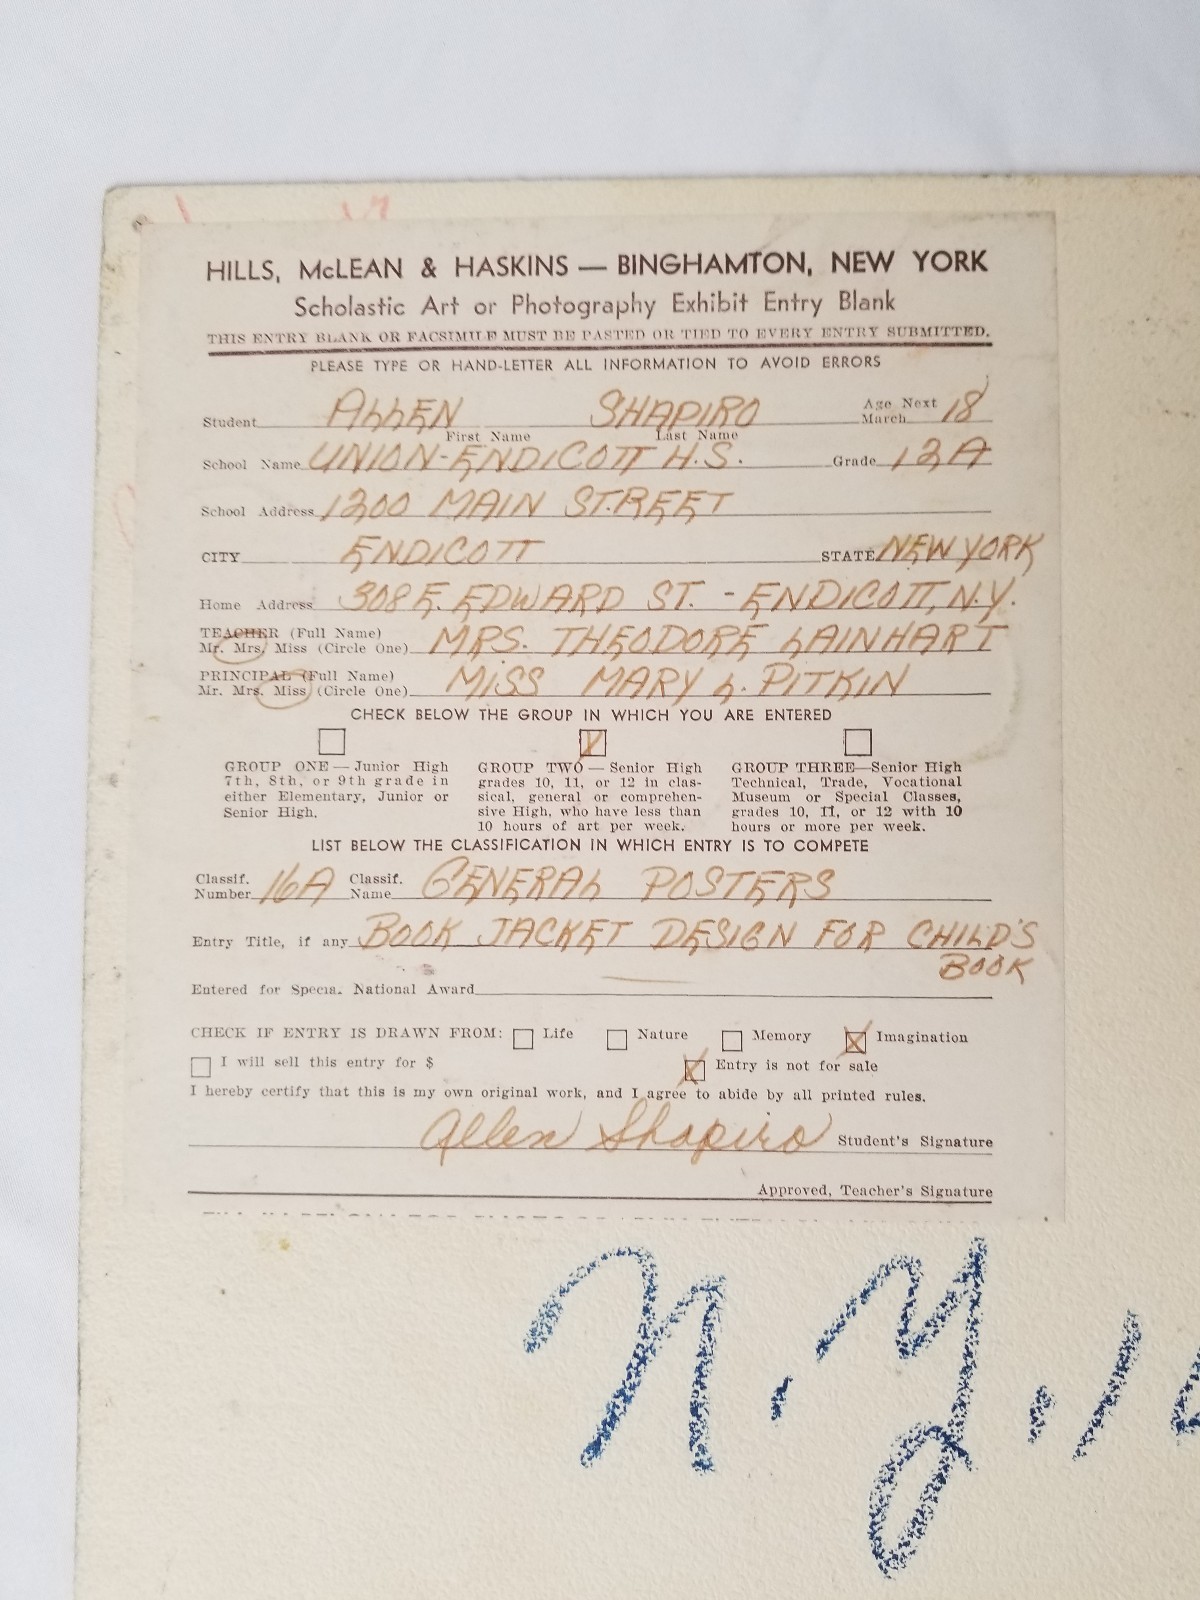 HILLS, McLEAN & HASKINS — BINGHAMTON, NEW YORK
Scholastic Art or Photography Exhibit Entry Blank
THIS ENTRY BLANK OR FACSIMILE MUST BE PASTED OR TIED TO EVERY ENTRY SUBMITTED.
PLEASE TYPE OR HAND-LETTER ALL INFORMATION TO AVOID ERRORS
Student ALLEN SHAPIRO Age Next March 18
First Name Last Name
School Name UNION-ENDICOTT H.S. Grade 12A
School Address 1200 MAIN STREET
CITY ENDICOTT STATE NEW YORK
Home Address 308 E. EDWARD ST. - ENDICOTT, N.Y.
TEACHER (Full Name)
Mr. Mrs. Miss (Circle One) MRS. THEODORE LAINHART
PRINCIPAL (Full Name)
Mr. Mrs. Miss (Circle One) MISS MARY L. PITKIN
CHECK BELOW THE GROUP IN WHICH YOU ARE ENTERED
X
GROUP ONE — Junior High
7th, 8th, or 9th grade in
either Elementary, Junior or
Senior High.
GROUP TWO — Senior High
grades 10, 11, or 12 in clas-
sical, general or comprehen-
sive High, who have less than
10 hours of art per week.
GROUP THREE—Senior High
Technical, Trade, Vocational
Museum or Special Classes,
grades 10, 11, or 12 with 10
hours or more per week.
LIST BELOW THE CLASSIFICATION IN WHICH ENTRY IS TO COMPETE
Classif. Number 16A Classif. Name GENERAL POSTERS
Entry Title, if any BOOK JACKET DESIGN FOR CHILD'S
BOOK
Entered for Special National Award
CHECK IF ENTRY IS DRAWN FROM: Life Nature Memory X Imagination
I will sell this entry for $ X Entry is not for sale
I hereby certify that this is my own original work, and I agree to abide by all printed rules.
Allen Shapiro Student's Signature
Approved, Teacher's Signature
N.Y.